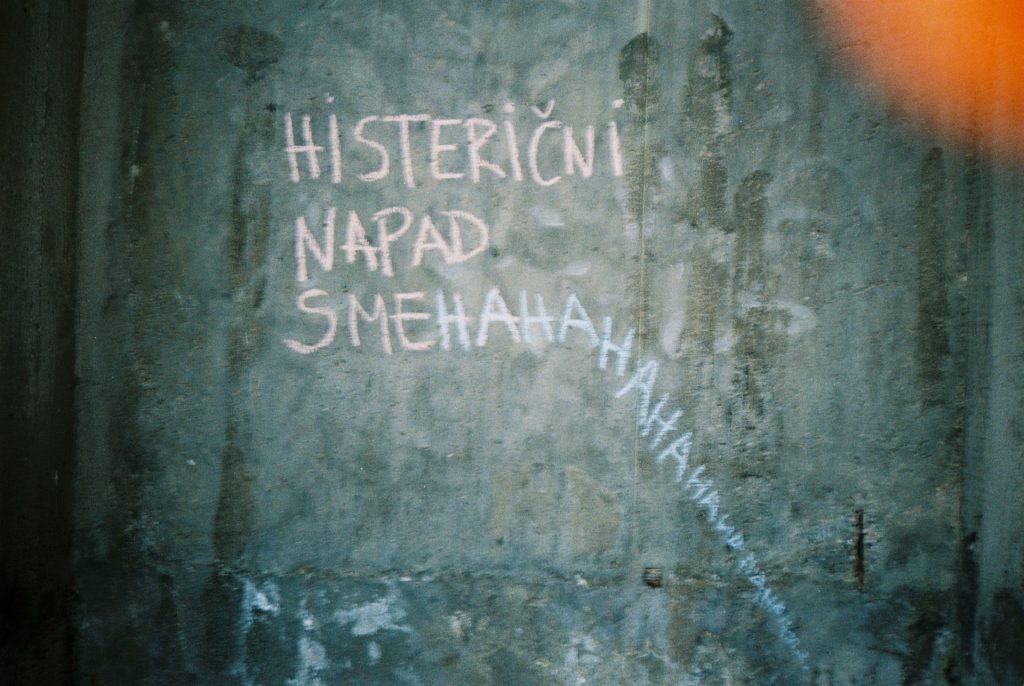 HISTERIČNI
NAPAD
SMEHAHAHAHAHAHAHAHA